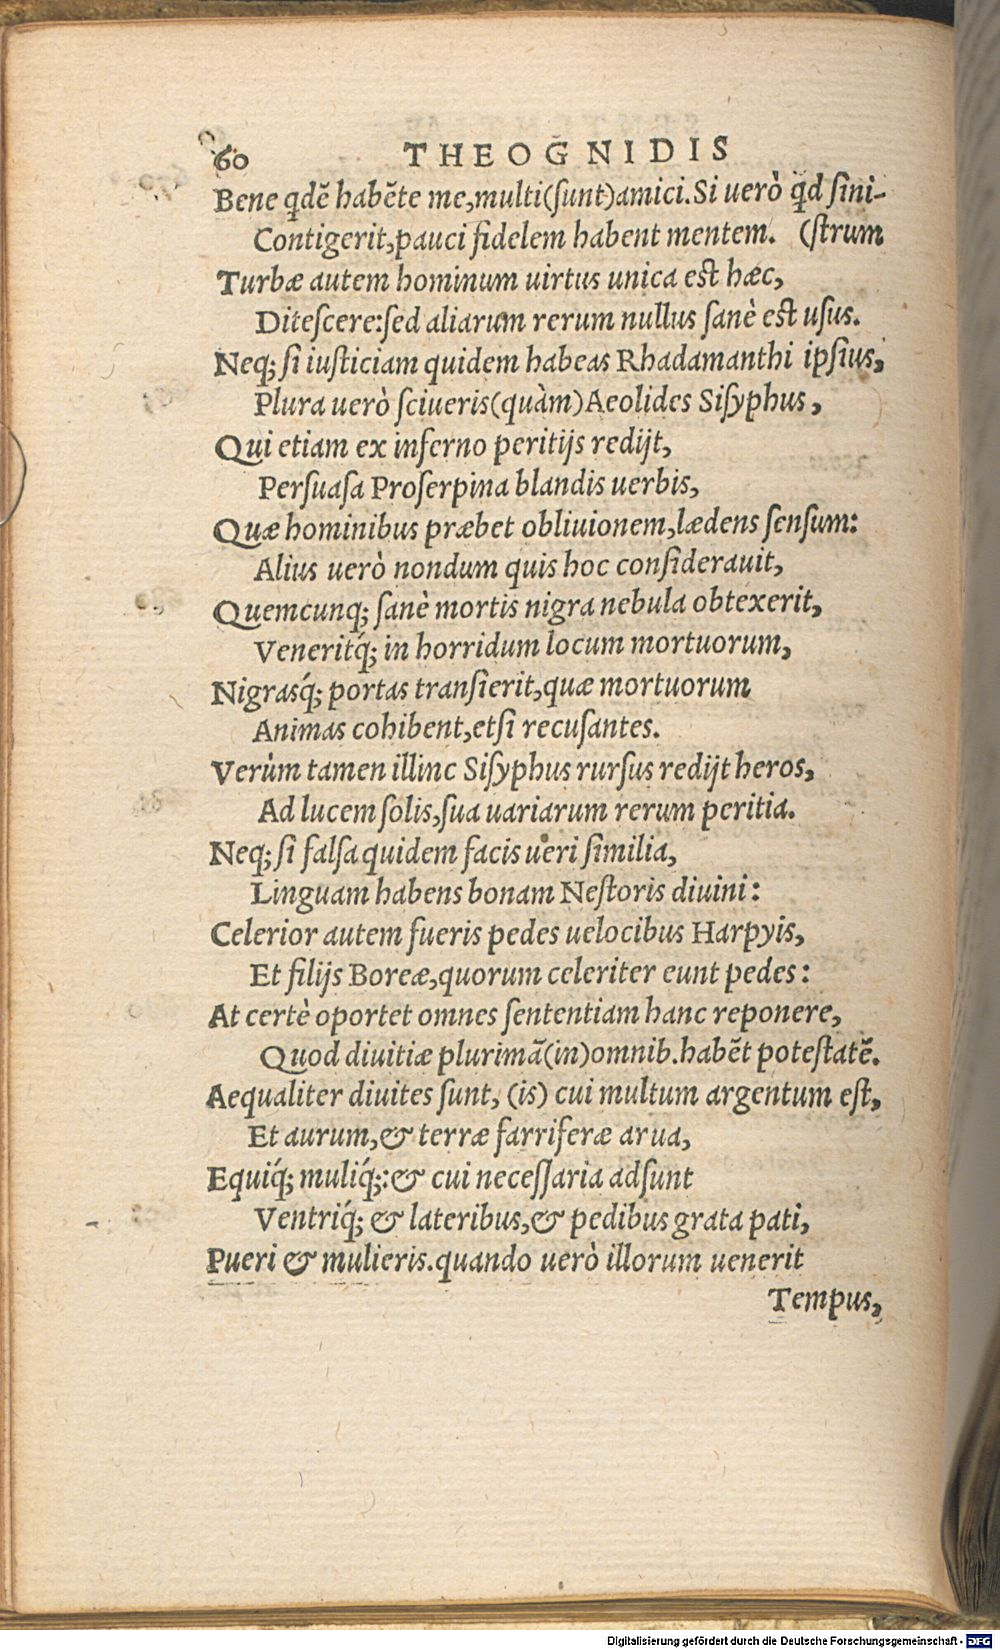 60 THEOGNIDIS
Bene qdẽ habẽte me,multi(ſunt)amici.Si uerò qd ſini-
Contigerit,pauci fidelem habent mentem. (ſtrum
Turbæ autem hominum uirtus unica est hæc,
Diteſcere:ſed aliarum rerum nullus ſanè est uſus.
Neq; ſi iuſticiam quidem habeas Rhadamanthi ipſius,
Plura uerò ſciueris(quàm)Aeolides Siſyphus,
Qui etiam ex inferno peritijs redijt,
Perſuaſa Proſerpina blandis uerbis,
Quæ hominibus præbet obliuionem,lædens ſenſum:
Alius uerò nondum quis hoc conſiderauit,
Quemcunq; ſanè mortis nigra nebula obtexerit,
Veneritq́; in horridum locum mortuorum,
Nigrasq́; portas tranſierit,quæ mortuorum
Animas cohibent,etſi recuſantes.
Verùm tamen illinc Siſyphus rurſus redijt heros,
Ad lucem ſolis,ſua uariarum rerum peritia.
Neq; ſi falſa quidem facis ueri ſimilia,
Linguam habens bonam Neſtoris diuini:
Celerior autem fueris pedes uelocibus Harpyis,
Et filijs Boreæ,quorum celeriter eunt pedes:
At certè oportet omnes ſententiam hanc reponere,
Quod diuitiæ plurimã(in)omnib.habẽt poteſtatẽ.
Aequaliter diuites ſunt, (is) cui multum argentum eſt,
Et aurum,& terræ farriferæ arua,
Equiq́; muliq́;:& cui neceſſaria adſunt
Ventriq́; & lateribus,& pedibus grata pati,
Pueri & mulieris.quando uerò illorum uenerit
Tempus,
Digitalisierung gefördert durch die Deutsche Forschungsgemeinschaft - DFG